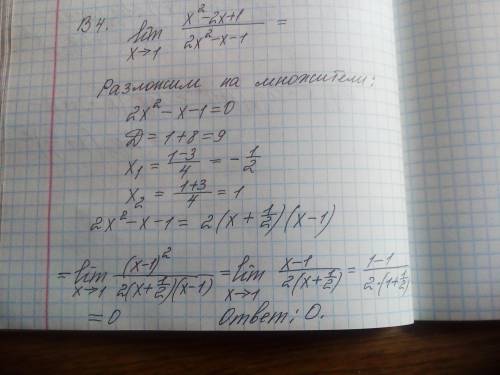 В4. lim x→1 (x²-2x+1)/(2x²-x-1) =
Разложим на множители:
2x²-x-1=0
D=1+8=9
x₁ = (1-3)/4 = -1/2
x₂ = (1+3)/4 = 1
2x²-x-1 = 2(x+1/2)(x-1)
= lim x→1 (x-1)²/(2(x+1/2)(x-1)) = lim x→1 (x-1)/(2(x+1/2)) = (1-1)/(2·(1+1/2))
= 0 Ответ: 0.